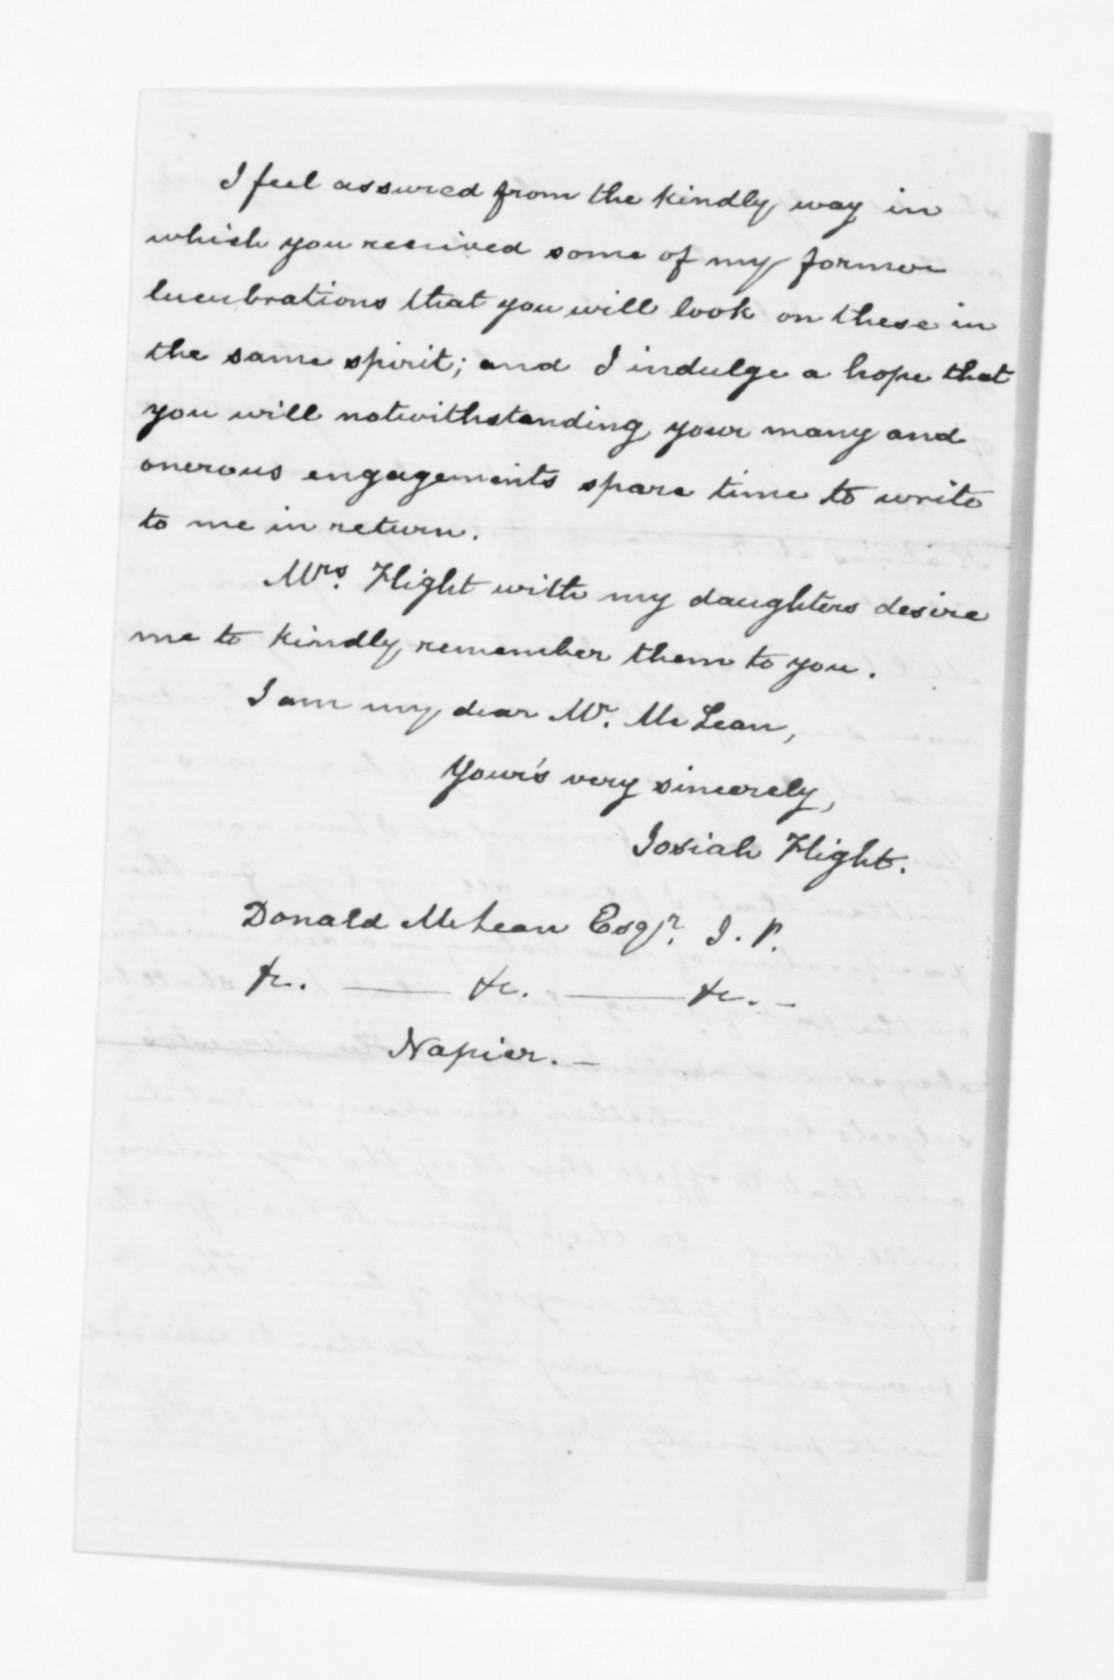 I feel assured from the kindly way in
which you received some of my former
lucubrations that you will look on these in
the same spirit; and I indulge a hope that
you will notwithstanding your many and
onerous engagements spare time to write
to me in return.
Mrs. Flight with my daughters desire
me to kindly remember them to you.
I am my dear Mr. McLean,
Your's very sincerely,
Josiah Flight.
Donald McLean Esqr. J. P.
&c. — &c. — &c. —
Napier. —